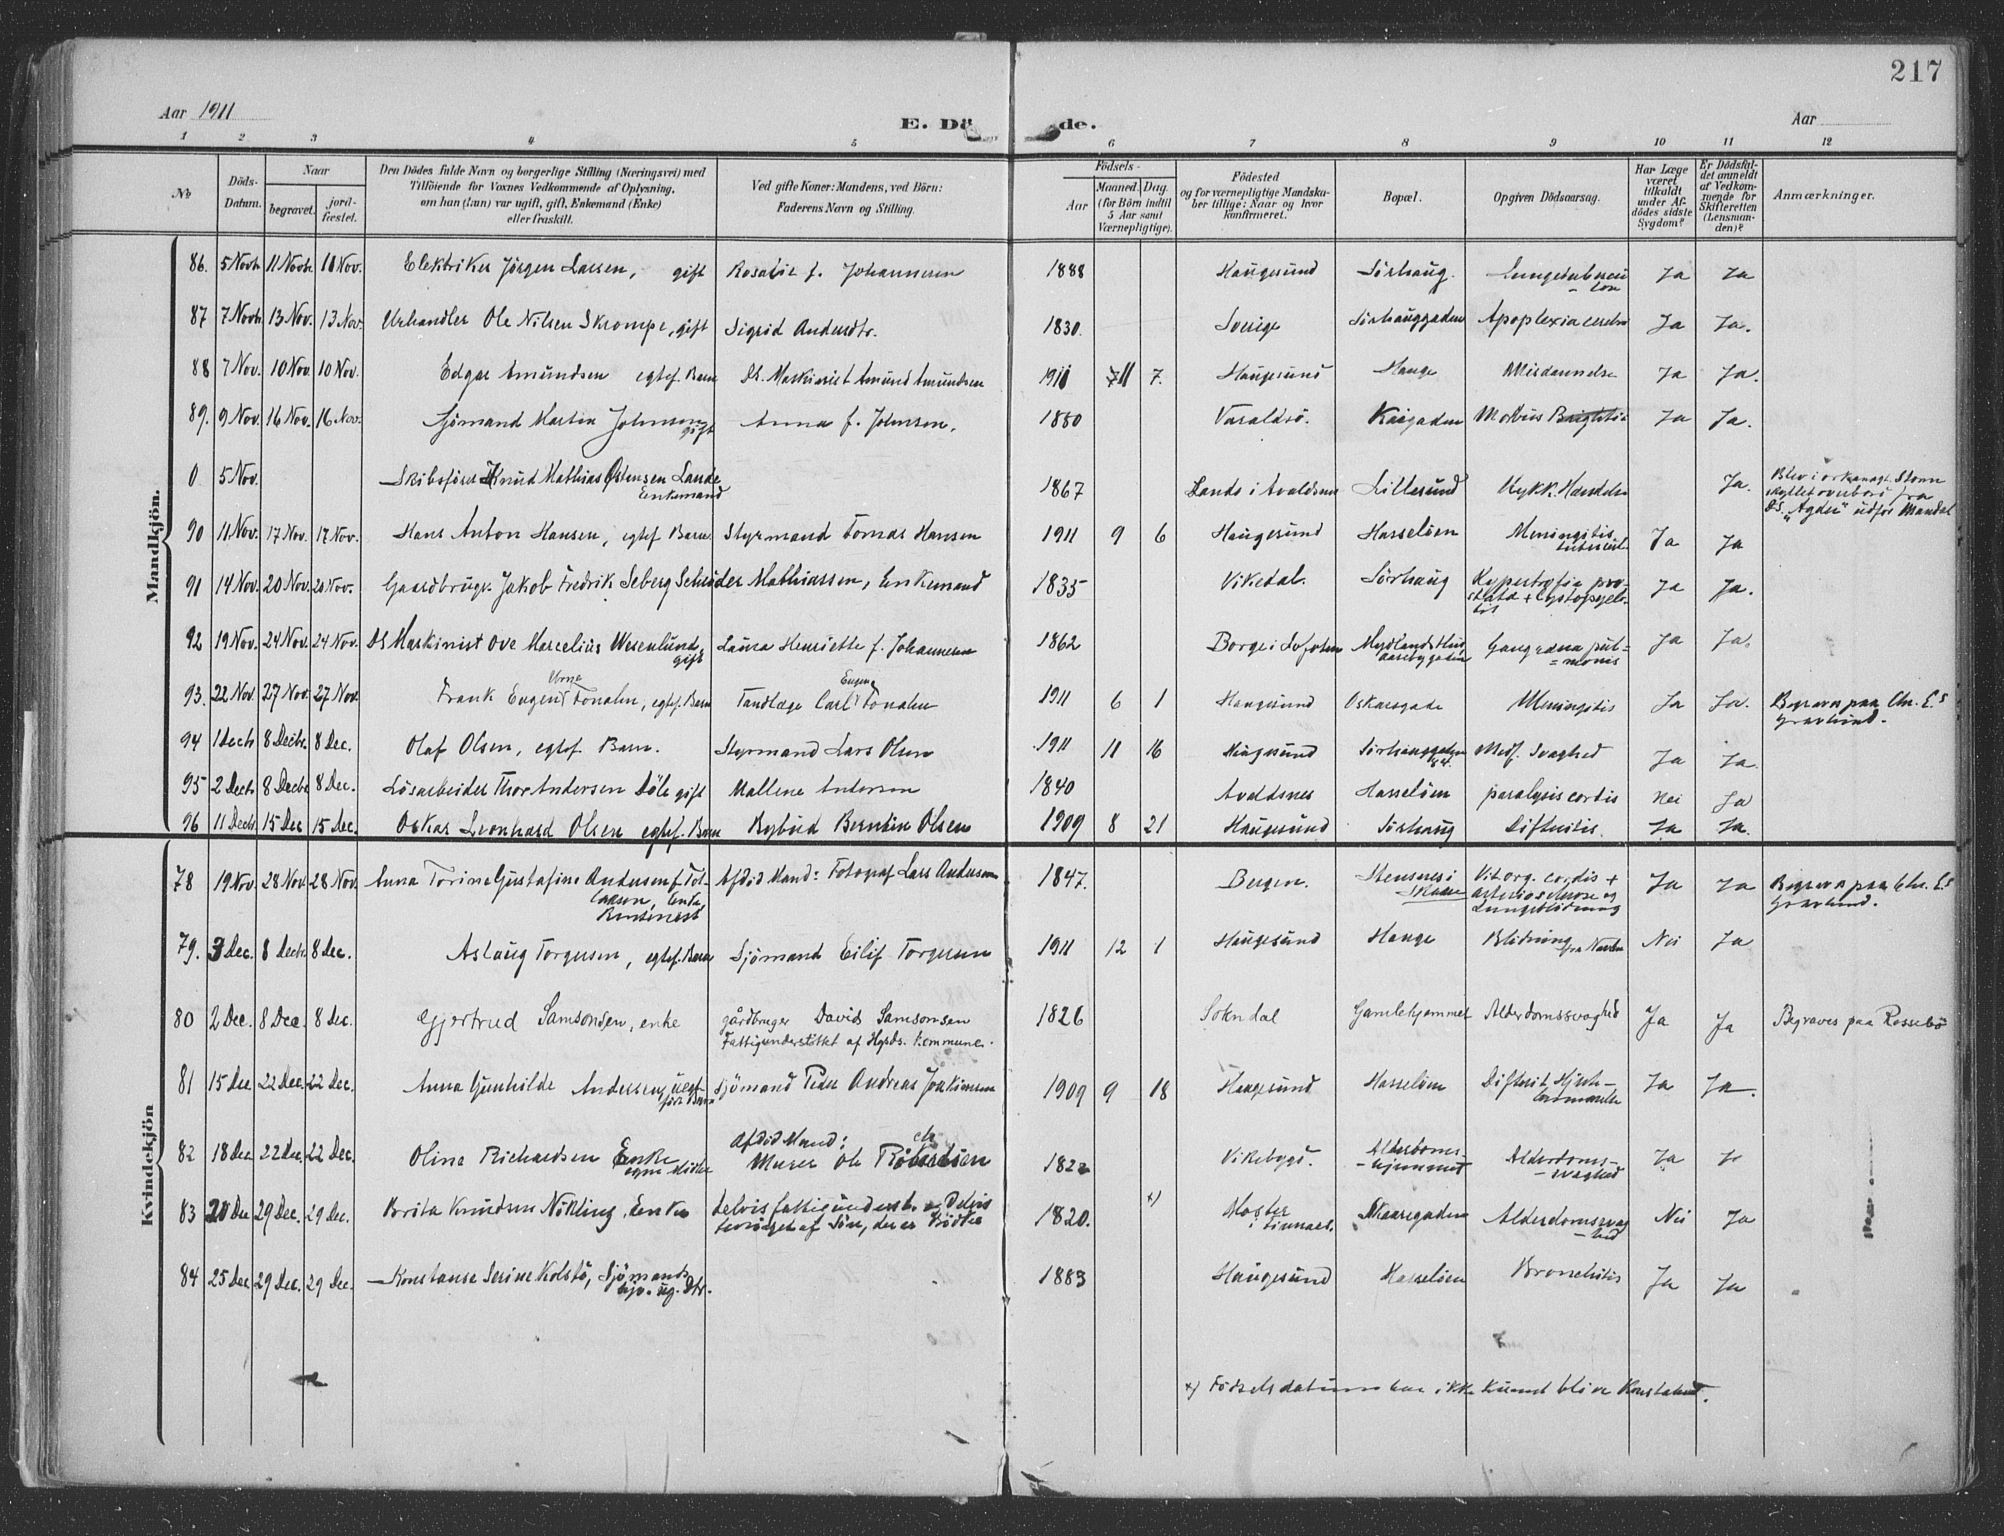 217
Aar 1911
E. Dö de.
Aar
1 2 3 4 5 6 7 8 9 10 11 12
No
Döds-Datum.
Naar
begravet.
jord-fæstet.
Den Dödes fulde Navn og borgerlige Stilling (Næringsvei) med
Tilföiende for Voxnes Vedkommende af Oplysning,
om han (hun) var ugift, gift, Enkemand (Enke)
eller fraskilt.
Ved gifte Koner: Mandens, ved Börn:
Faderens Navn og Stilling.
Födsels-
Aar
Maaned. Dag.
(for Börn indtil
5 Aar samt
Værnepligtige).
Födested
og for værnepligtige Mandska-
ber tillige: Naar og hvor
konfirmeret.
Bopæl.
Opgiven Dödsaarsag.
Har Læge
været
tilkaldt
under Af-
dödes sidste
Sygdom?
Er Dödsfal-
det anmeldt
af Vedkom-
mende for
Skifteretten
(Lensman-
den)?
Anmærkninger.
Mandkjön.
86. 5 Novb. 11 Novb. 11 Nov. Elektriker Jörgen Larsen, gift Rosalie f. Johannesen 1888 Haugesund Sörhaug. Ja Ja
87 7 Novb. 13 Nov. 13 Nov. Urhandler Ole Nilsen Skrompe, gift Sigrid Andersdtr. 1830. Sverige Sörhauggaden Apoplexia cerebri Ja Ja.
88 7 Nov. 10 Nov. 10 Nov. Edgar Amundsen egtef. Barn DS. Maskinist Amund Amundsen 1911 11 7. Haugesund Hauge Misdannelse Ja Ja.
89. 9 Nov. 16 Nov. 16 Nov. Sjömand Martin Johnsen gift Anna f. Johnsen. 1880 Varaldsö. Kaigaden Morbus Brightii Ja Ja.
0 5 Nov. Skibsförer Knud Mathias Östensen Lande Enkemand 1867 Lande i Avaldsnes Lillesund Ulykk. Hændelse Ja. Blev i orkanagt. Storm
skyllet overbord fra
DS. "Agder" udfor Mandal
90 11 Nov. 17 Nov. 17 Nov. Hans Anton Hansen, egtef. Barn Styrmand Tomas Hansen 1911 9 6 Haugesund Hasselöen Meningitis tubercul. Ja Ja
91 14 Nov. 20 Nov. 20 Nov. Gaardbruger Jakob Fredrik Seberg Schröder Mathiassen, Enkemand 1835 Vikedal. Sörhaug Hypertrofia prostata + Ja Ja.
92 19 Nov. 24 Nov. 24 Nov. DS Maskinist Ove Marcelius Wesenlund, gift Laura Henriette f. Johannesen 1862 Borge i Lofoten Mydlands Hus, Aasbygaden Gangræna pulmonis Ja Ja.
93. 22 Nov. 27 Nov. 27 Nov. Frank Eugen Tonahn, egtef. Barn Tandlæge Carl Eugen Tonahn 1911 6 1 Haugesund Oskarsgade Meningitis Ja Ja. Begraven paa Chr. E.s
Gravlund.
94 1 Decb. 8 Decbr. 8 Dec. Olaf Olsen, egtef. Barn. Styrmand Lars Olsen 1911 11 16 Haugesund Sörhauggaden Medf. Svaghed Ja Ja.
95 2 Decb. 8 Decbr. 8 Dec. Lösarbeider Thor Andersen Döle gift Mallene Andersen 1840 Avaldsnes Hasselöen paralysis cordis Nei Ja
96 11 Decbr. 15 Dec 15 Dec. Oskar Leonhard Olsen egtef. Barn Rybud Berntin Olsen 1909 8 21 Haugesund Sörhaug Difteritis. Ja Ja.
Kvindekjön
78 19 Nov. 28 Nov. 28 Nov. Anna Torine Gustafine Andersen f. Tollaksen, Enke, Afdöd Mand: Fotograf Lars Andersen 1847. Bergen. Stensnes i Skaare Vit. org. cordis + arteriosklerose og Lungeblödning Ja Ja Begraven paa Chr. E.s
Gravlund.
79. 3 Dec. 8 Decb. 8 Dec. Aslaug Torgersen, egtef. Barn Sjömand Eilif Torgersen 1911 12 1 Haugesund Hauge Blödning fra Navlen Nei Ja
80 2 Dec. 8 Dec. 8 Dec. Gjertrud Samsonsen, enke gårdbruger David Samsonsen
Fattigunderstöttet af Hgsds. Kommune. 1826 Sokndal Gamlehjemmet Alderdomssvaghed Ja Ja Begraves paa Rossebö
81 15 Dec 22 Dec. 22 Dec. Anna Gunhilde Andersen, uegt födt Barn Sjömand Peder Andreas Joakimsen 1909 9 18 Haugesund Hasselöen Difterit, Hjerte- Ja Ja.
82 18 Dec 22 Dec 22 Dec. Oline Richardsen Enke Afdöd Mand:
Murer Ole 1822 Vikebygd. Alderdoms-hjemmet Alderdoms-svaghed Ja
83 20 Dec 29 Dec. 29 Dec. Brita Knudsen Nökling, Enke delvis fattigunderst. og Delvis
forsörget af Sön, der er 1820. x) Moster i Finnaas. Skaaregaden Alderdomssvaghed Nei Ja
84 25 Dec 29 Dec. 29 Dec. Konstanse Serine Kolstö, Sjömands ug. Dtr. 1883 Haugesund Hasselöen Bronchitis Ja Ja
x) Födselsdatum har ikke kunnet blive konstateret.